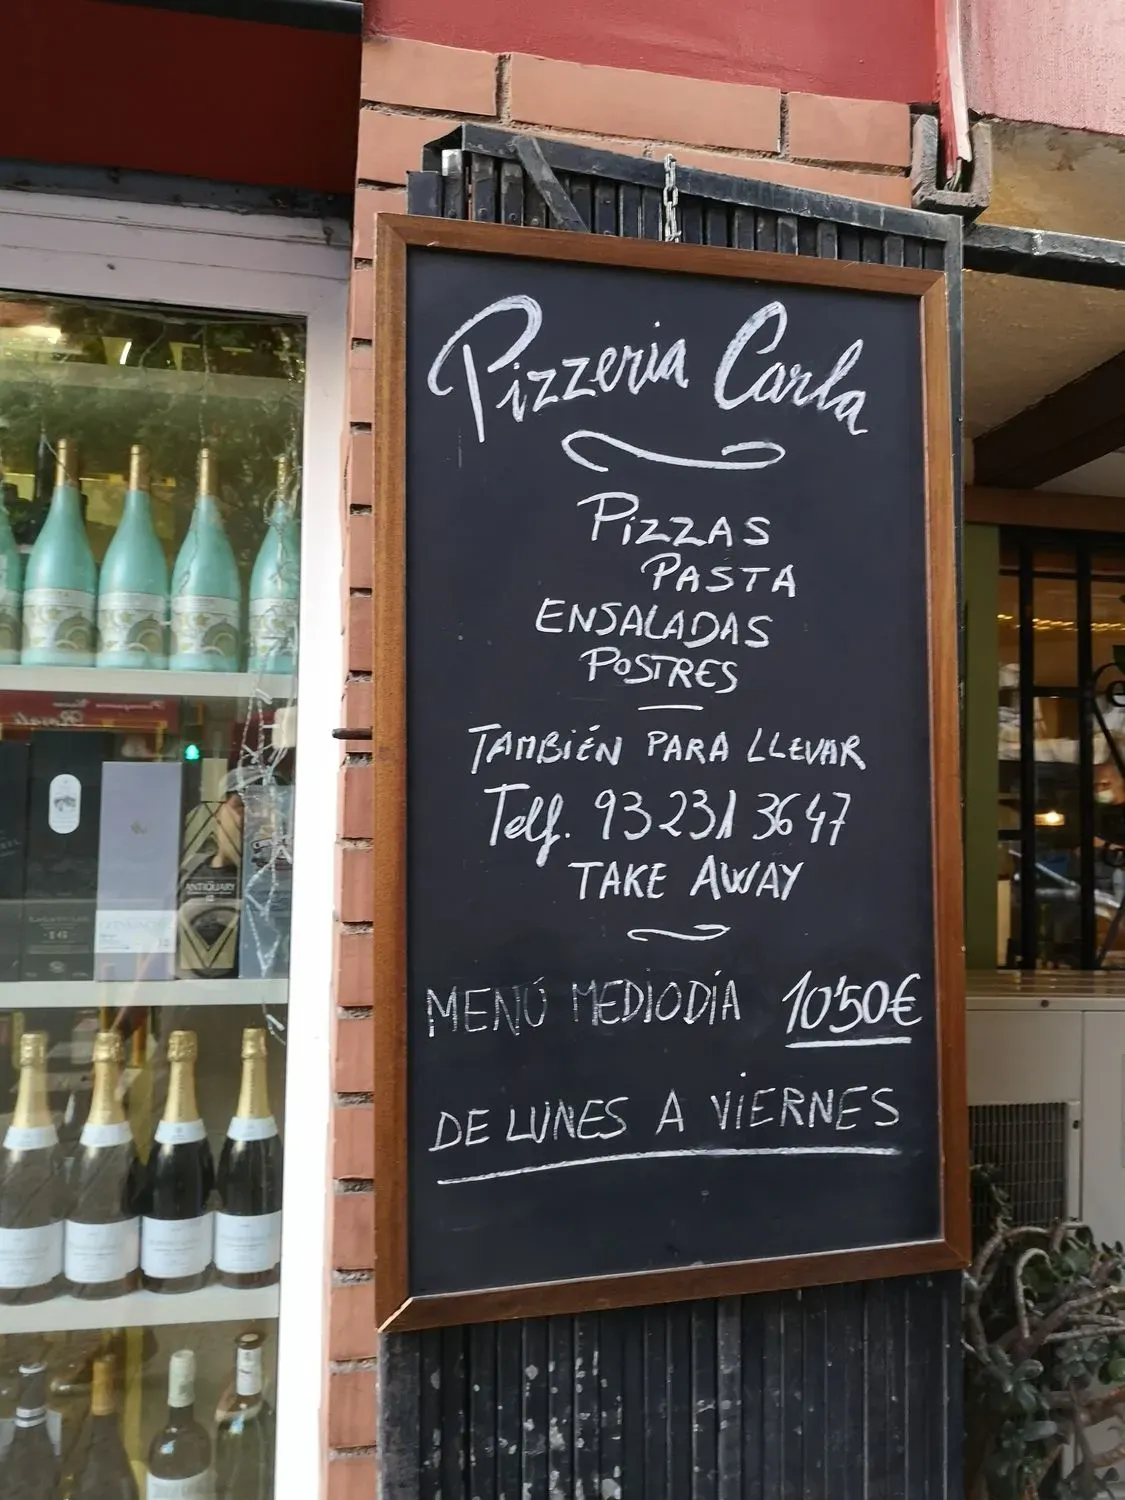 Pizzeria Carla
PIZZAS
PASTA
ENSALADAS
POSTRES
TAMBIÉN PARA LLEVAR
Telf. 93 231 36 47
TAKE AWAY
MENÚ MEDIODÍA 10'50€
DE LUNES A VIERNES
ANTIQUARY